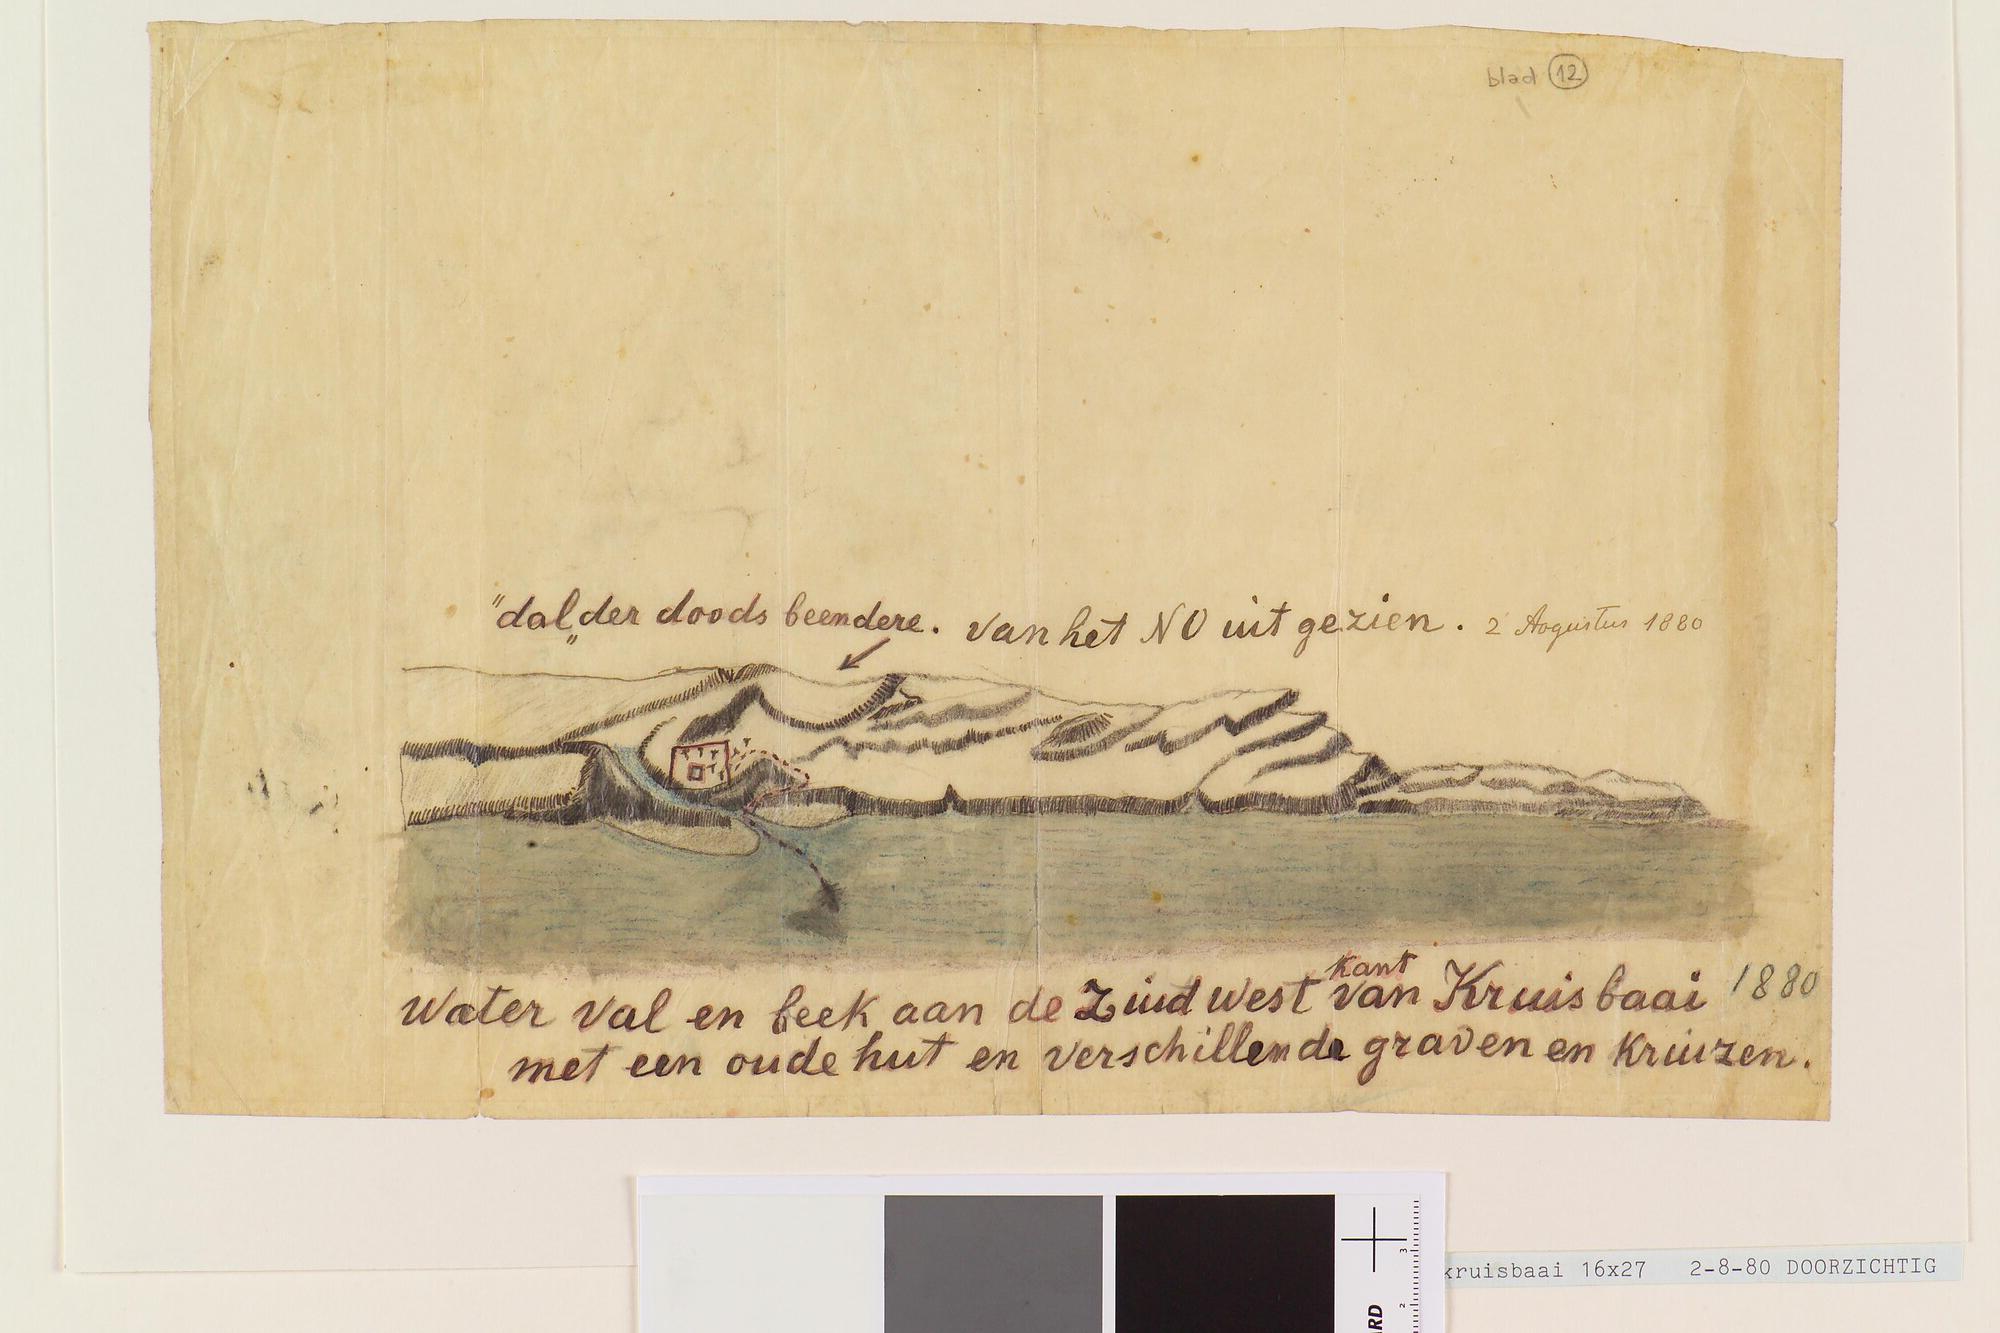 blad 12
"dal„ der doods beendere. van het NO uit gezien. 2 Augustus 1880
Water val en beek aan de Zuid west kant van Kruis baai 1880
met een oude hut en verschillende graven en kruizen.
kruisbaai 16x27 2-8-80 DOORZICHTIG
3
2
ARD